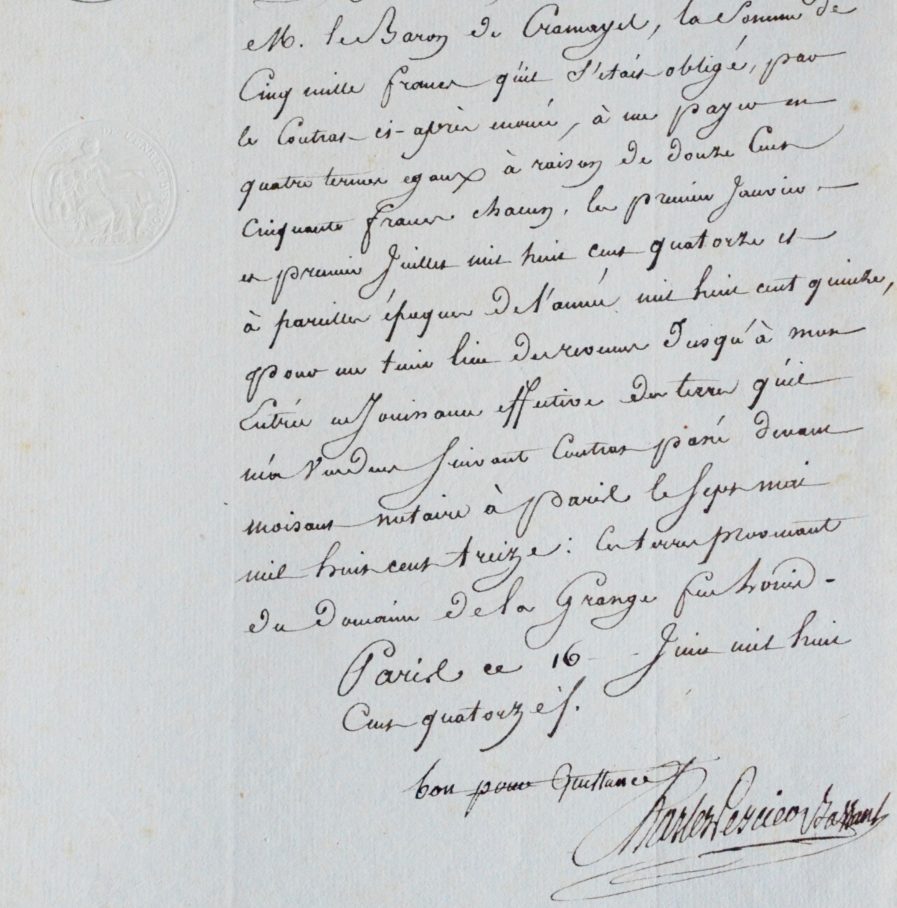 M. le Baron de Cramayel, la Somme de
Cinq mille francs qu'il s'etait obligé, par
le Contrat ci-après énoncé, à me payer en
quatre termes egaux à raison de douze Cent
Cinquante francs chacun, les premier Janvier
et premier Juillet mil huit cent quatorze et
à pareilles époques de l'année mil huit cent quinze,
pour me tenir lieu des revenus Jusqu'à mon
Entrée en Jouissance effective des terres qu'il
m'a Vendues Suivant Contrat passé devant
moisant notaire à Paris le Sept mai
mil huit cent treize: Ces terres provenant
du Domaine de la Grange
Paris ce 16 Juin mil huit
Cent quatorze/.
bon pour Quittance
Charles